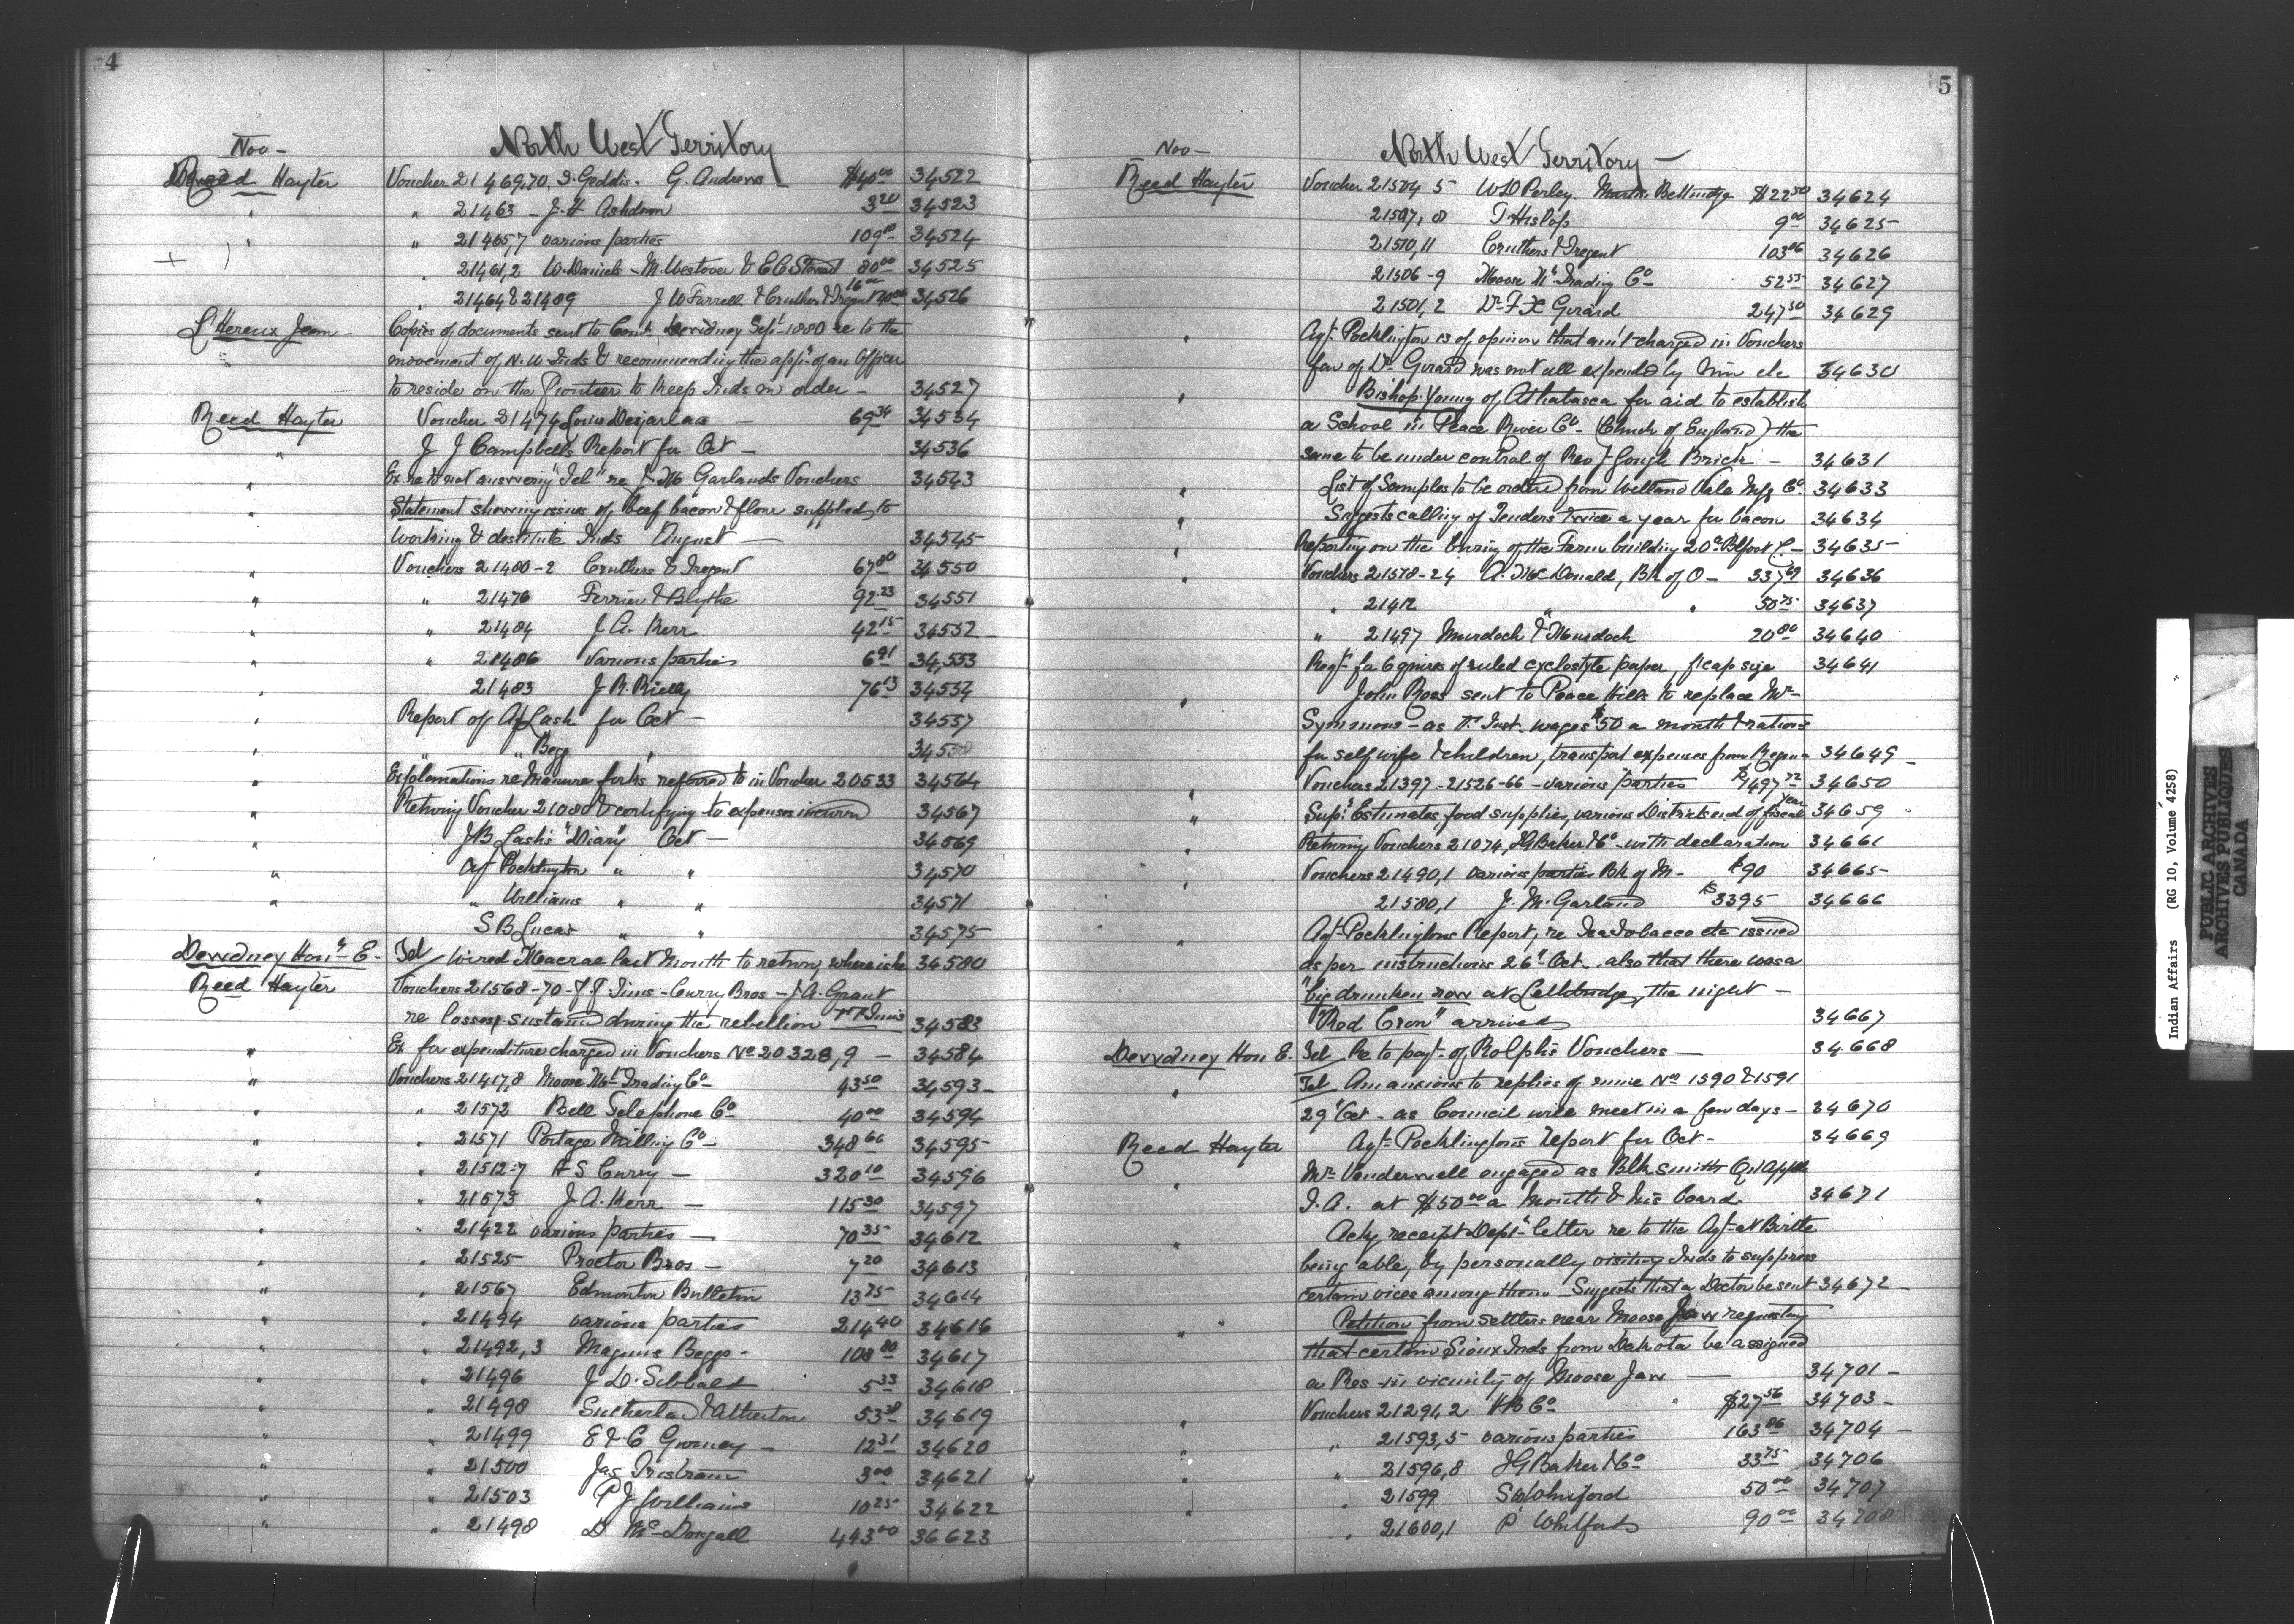 4
Nov -
North West Territory
Reed Hayter Voucher 21469,70 J. Geddis - G. Andrews - $40 00 34522
" " 21463 - J. H Ashdown 3 20 34523
" " 21465,7 various parties 109 00 34524
" 21461,2 W. Daniels - M. Westover & C C Stewart 80 00 34525
16 00
" 21464 & 21489 J W Farrell & Cruthers & Tregent 34526
L'Hereux Jean - Copies of documents sent to Com. Dewdney Sept 1880 re to the
movement of N.W. Inds & recommending the app't of an Officer
to reside on the Frontier to keep Inds in order - 34527
Reed Hayter Voucher 21474 Louis Desjarlais - 69 34 34534
" J J Campbell's Report for Oct - 34536
" Ex re to not answering "Tel" re J M Garlands Vouchers 34543
" Statement showing issues of beef bacon & flour supplied to
working & destitute Inds August - 34545
" Vouchers 21480-2 Cruthers & Tregent 67 80 34550
" " 21476 Ferrier & Blythe 92 23 34551
" " 21484 J. A. Kerr 42 15 34552
" " 21486 Various parties 6 91 34,553
" 21483 J R. Rielly 76 13 34554
" Report of Agt Lash for Oct - 34557
" " " Begg " 34558
" Explanations re Manure forks referred to in Voucher 20533 34564
" Retning Voucher 21080 & certifying to expenses incurred 34567
" J B Lash's "Diary" Oct - 34569
" Agt Pocklington " " 34570
" " Williams " " 34571
S B Lucas " " 34575
Dewdney Hon E. - Tel wired Macrae last month to return, where is he 34580
Reed Hayter Vouchers 21568-70 - J. F. Tims - Curry Bros - J A. Grant
re losses sustained during the rebellion 34583
" Ex for expenditure charged in Vouchers No 20328,9 - 34584
" Vouchers 21417,8 Moose Mt Trading Co - 43 50 34593 -
" " 21572 Bell Telephone Co 40 00 34594
" " 21571 Portage Milling Co - 348 66 34595
" " 21512-7 A S Curry - 320 10 34596
" " 21573 J. A. Kerr - 115 30 34597
" " 21422 various parties - 70 35 34612
" " 21525 Proctor Bros - 7 20 34613
" " 21567 Edmonton Bulletin 13 75 34614
" " 21494 various parties 214 40 34616
" " 21492,3 Magnus Begg - 108 80 34617
" " 21496 J D. Sibbald 5 33 34618
" " 21498 Sutherland & Atherton 53 38 34619
" " 21499 E & C Gurney - 12 31 34620
" " 21500 Jas Tristram 3 00 34621
" " 21503 P J Williams 10 25 34622
" " 21498 D McDougall 443 00 36623
5
Nov -
North West Territory -
Reed Hayter Voucher 21504 5 W D Perley. $22 50 34624
21507,8 T. Hislop 9 00 34625
21510,11 Cruthers & Tregent 103 06 34626
21506-9 Moose Mt Trading Co 52 55 34627
21501,2 Dr F X Girard 247 50 34629
" Agt Pocklington is of opinion that am't charged in Vouchers
fav of Dr Girard was not all expended by him etc 34630
" Bishop Young of Athabasca for aid to establish
a School in Peace River Co - (Church of England) the
same to be under control of Rev J Gough Brick - 34631
" List of Samples to be ordered from Welland Vale Mfg Co 34633
" Suggests calling of Tenders twice a year for bacon 34634
" Reporting on the burning of the Farm building 20 a Blfoot C - 34635
" Vouchers 21518-24 A. McDonald, Bk of O - 337 69 34636
" 21412 " " 50 75 34637
" 21497 Murdoch & Murdoch 20 80 34640
Reqt for 6 quires of ruled cyclostyle paper, f'cap size 34641
" John Ross sent to Peace Hills to replace Mr
Symmons - as F. Inst. wages $50 a month & rations
for self wife & children, transpot expenses from Regina 34649 -
" Vouchers 21397 - 21526-66 - various parties $1497 72 34650
" Sup. Estimates, food supplies, various Districts end of fiscal year 34659
" Retning Vouchers 21074, J G Baker & Co - with declaration 34661
" Vouchers 21490,1 various parties Bk of M - $90 34665
21580,1 J. M. Garland $3395 34666
" Agt Pocklingtons Report, re Tea Tobacco etc issued
as per instructions 26th Oct. also that there was a
"big drunken row at Lethbridge, the night -
"Red Crow" arrived 34667
Dewdney Hon E. Tel Re to payt of Rolph's Vouchers - 34668
" Tel Am anxious to replies of mine Nos 1590 & 1591
29th Oct - as Council will meet in a few days - 34670
Reed Hayter Agt Pocklington's report for Oct - 34669
" Mr Vanderwell engaged as Blksmith Qu'Appelle
I. A. at $50 00 a Month & his board 34671
" Ackg receipt Dept letter re to the Agt at Birtle
being able, by personally visiting Inds to suppress
certain vices among them - Suggests that a Doctor be sent 34672 -
" " Petition from settlers near Moose Jaw requesting
that certain Sioux Inds from Dakota be assigned
a Res in vicinity of Moose Jaw - 34701 -
" Vouchers 21291,2 H B Co $27 56 34703 -
" " 21593,5 various parties 163 86 34704 -
" " 21596,8 J G Baker & Co 33 75 34706
" " 21599 50 00 34707
" " 21600,1 P Whitford 90 00 34708
Indian Affairs (RG 10, Volume 4258)
PUBLIC ARCHIVES
ARCHIVES PUBLIQUES
CANADA